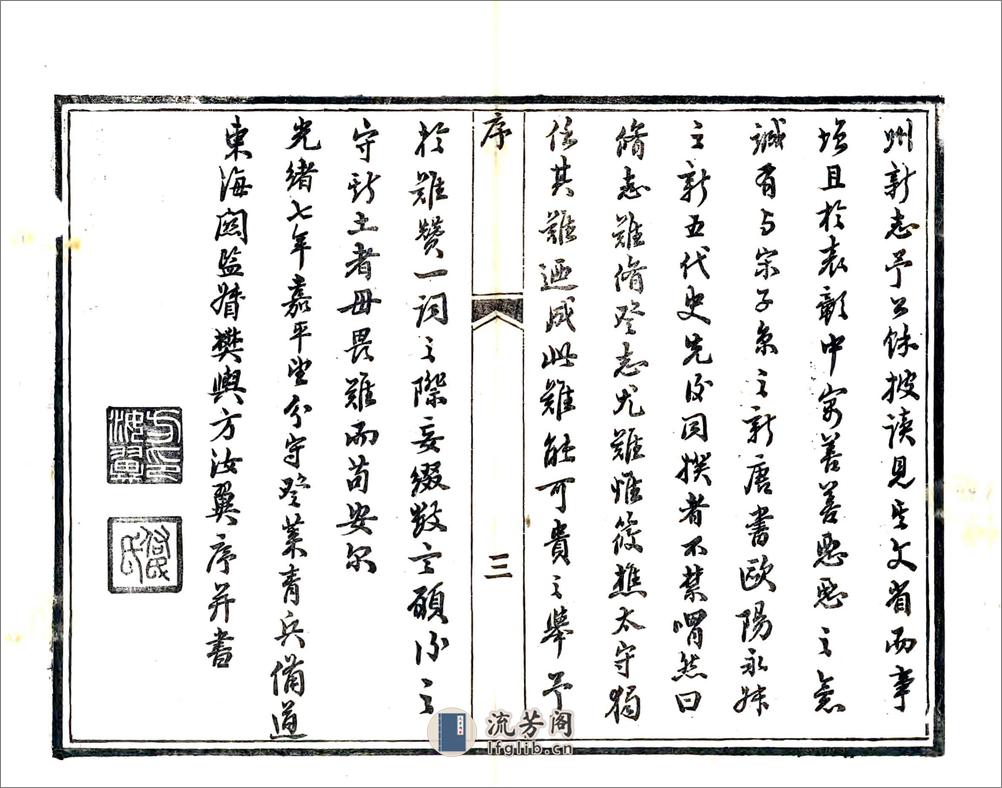 州新志予公餘披讀見其文省而事
增且於表彰中寓善善惡惡之意
誠有与宋子京之新唐書歐陽永叔
之新五代史先後同揆者不禁喟然曰
脩志難脩登志尤難惟筱樵太守獨
任其難迺成此難能可貴之舉予
序
三
於難贊一詞之際妄綴數言願後之
守斯土者毋畏難而苟安尔
光緒七年嘉平望分守登萊青兵備道
東海関監督樊輿方汝翼序并書
方印汝翼
氏
流芳阁
lfglib.cn